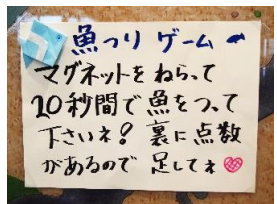 魚つり ゲーム
マグネットをねらって
20秒間で魚をつって
下さいネ! 裏に点数
があるので 足してネ♡